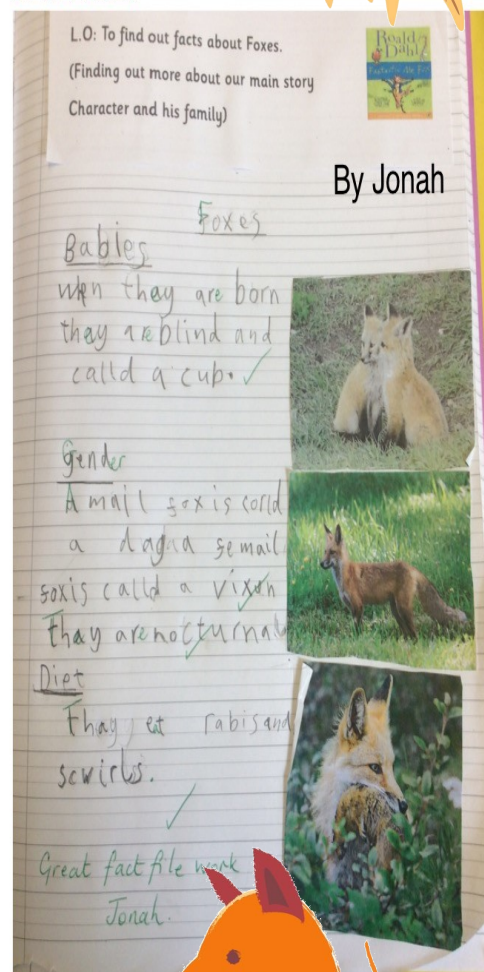 L.O: To find out facts about Foxes.
(Finding out more about our main story
Character and his family)
Roald
Dahl
Fantastic Mr Fox
By Jonah
Foxes
Babies
when they are born
they are blind and
calld a cub.
Gender
A mail fox is corld
a dag a a femail
foxis calld a vixen
Thay are nocturnal
Diet
Thay eat rabis and
scwirls.
Great fact file work
Jonah.